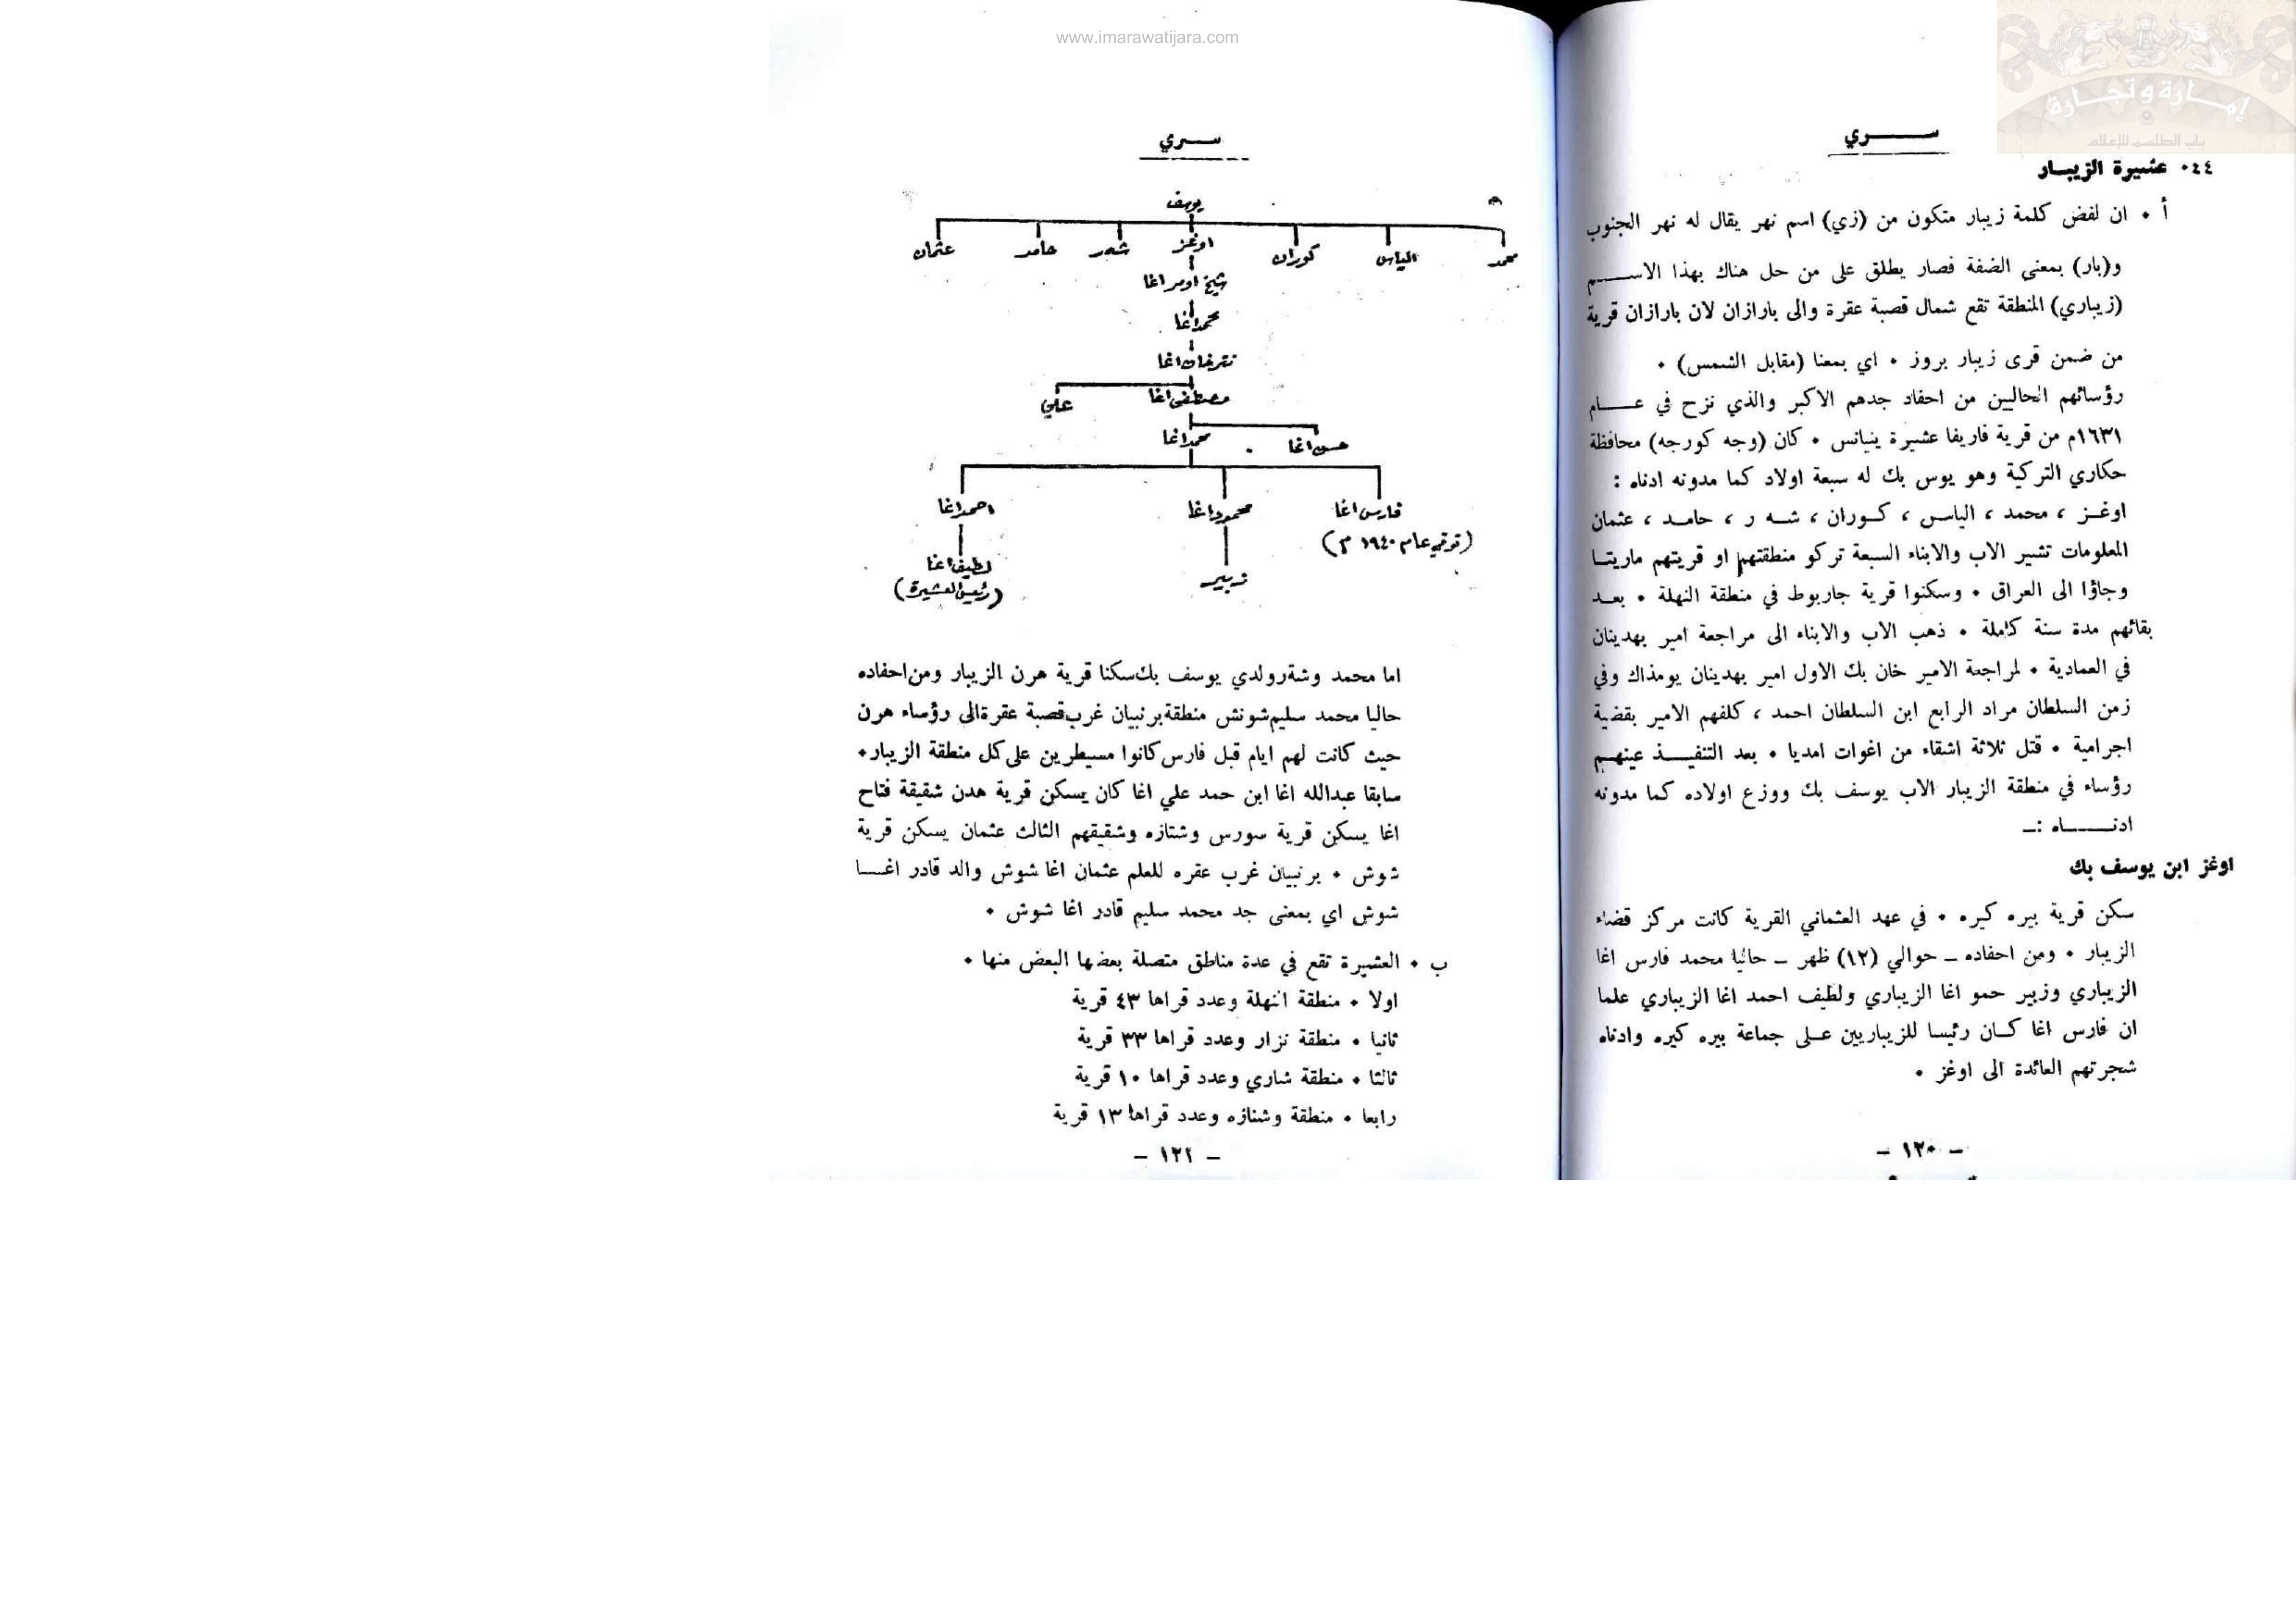 www.imarawatijara.com
إمارة وتجارة
باب الطلسم للإعلام
ســــري
٤٤٠ عشيرة الزيبـار
أ ٠ ان لفض كلمة زيبار متكون من (زي) اسم نهر يقال له نهر الجنوب
و(بار) بمعنى الضفة فصار يطلق على من حل هناك بهذا الاســـم
(زيباري) المنطقة تقع شمال قصبة عقرة والى بارازان لان بارازان قرية
من ضمن قرى زيبار بروز ٠ اي بمعنا (مقابل الشمس) ٠
رؤسائهم الحاليين من احفاد جدهم الاكبر والذي نزح في عـــام
١٦٣١م من قرية فاريفا عشيرة ينيانس ٠ كان (وجه كورجه) محافظة
حكاري التركية وهو يوس بك له سبعة اولاد كما مدونه ادناه :
اوغـز ، محمد ، الياس ، كـوران ، شـه ر ، حامـد ، عثمان
المعلومات تشير الاب والابناء السبعة تركو منطقتهم او قريتهم ماريتـا
وجاؤا الى العراق ٠ وسكنوا قرية جاربوط في منطقة النهلة ٠ بعـد
بقائهم مدة سنة كاملة ٠ ذهب الاب والابناء الى مراجعة امير بهدينان
في العمادية ٠ لمراجعة الامير خان بك الاول امير بهدينان يومذاك وفي
زمن السلطان مراد الرابع ابن السلطان احمد ، كلفهم الامير بقضية
اجرامية ٠ قتل ثلاثة اشقاء من اغوات امديا ٠ بعد التنفيـــذ عينهـم
رؤساء في منطقة الزيبار الاب يوسف بك ووزع اولاده كما مدونه
ادنــــاه :ــ
اوغز ابن يوسف بك
سكن قرية بيره كيره ٠ في عهد العثماني القرية كانت مركز قضاء
الزيبار ٠ ومن احفاده ــ حوالي (١٢) ظهر ــ حاليا محمد فارس اغا
الزيباري وزبير حمو اغا الزيباري ولطيف احمد اغا الزيباري علما
ان فارس اغا كـان رئيسا للزيباريين عـلى جماعة بيره كيره وادناه
شجرتهم العائدة الى اوغز ٠
ــ ١٢٠ ــ
ســري
يوسف
محمد الياس كوران اوغز شهر حامد عثمان
شيخ اومر اغا
محمد اغا
تترخان اغا
مصطفى اغا علي
حسن اغا محمد اغا
فارس اغا محمود اغا احمد اغا
(توفي عام ١٩٤٠ م)
زبير
لطيف اغا
(رئيس العشيرة)
اما محمد وشةرولدي يوسف بك سكنا قرية هرن الزيبار ومن احفاده
حاليا محمد سليم شونش منطقة برنبيان غرب قصبة عقرة الى رؤساء هرن
حيث كانت لهم ايام قبل فارس كانوا مسيطرين على كل منطقة الزيبار ٠
سابقا عبدالله اغا ابن حمد علي اغا كان يسكن قرية هدن شقيقة فتاح
اغا يسكن قرية سورس وشتازه وشقيقهم الثالث عثمان يسكن قرية
شوش ٠ برنبيان غرب عقره للعلم عثمان اغا شوش والد قادر اغـــا
شوش اي بمعنى جد محمد سليم قادر اغا شوش ٠
ب ٠ العشيرة تقع في عدة مناطق متصلة بعضها البعض منها ٠
اولا ٠ منطقة النهلة وعدد قراها ٤٣ قرية
ثانيا ٠ منطقة نزار وعدد قراها ٣٣ قرية
ثالثا ٠ منطقة شاري وعدد قراها ١٠ قرية
رابعا ٠ منطقة وشنازه وعدد قراها ١٣ قرية
ــ ١٢١ ــ